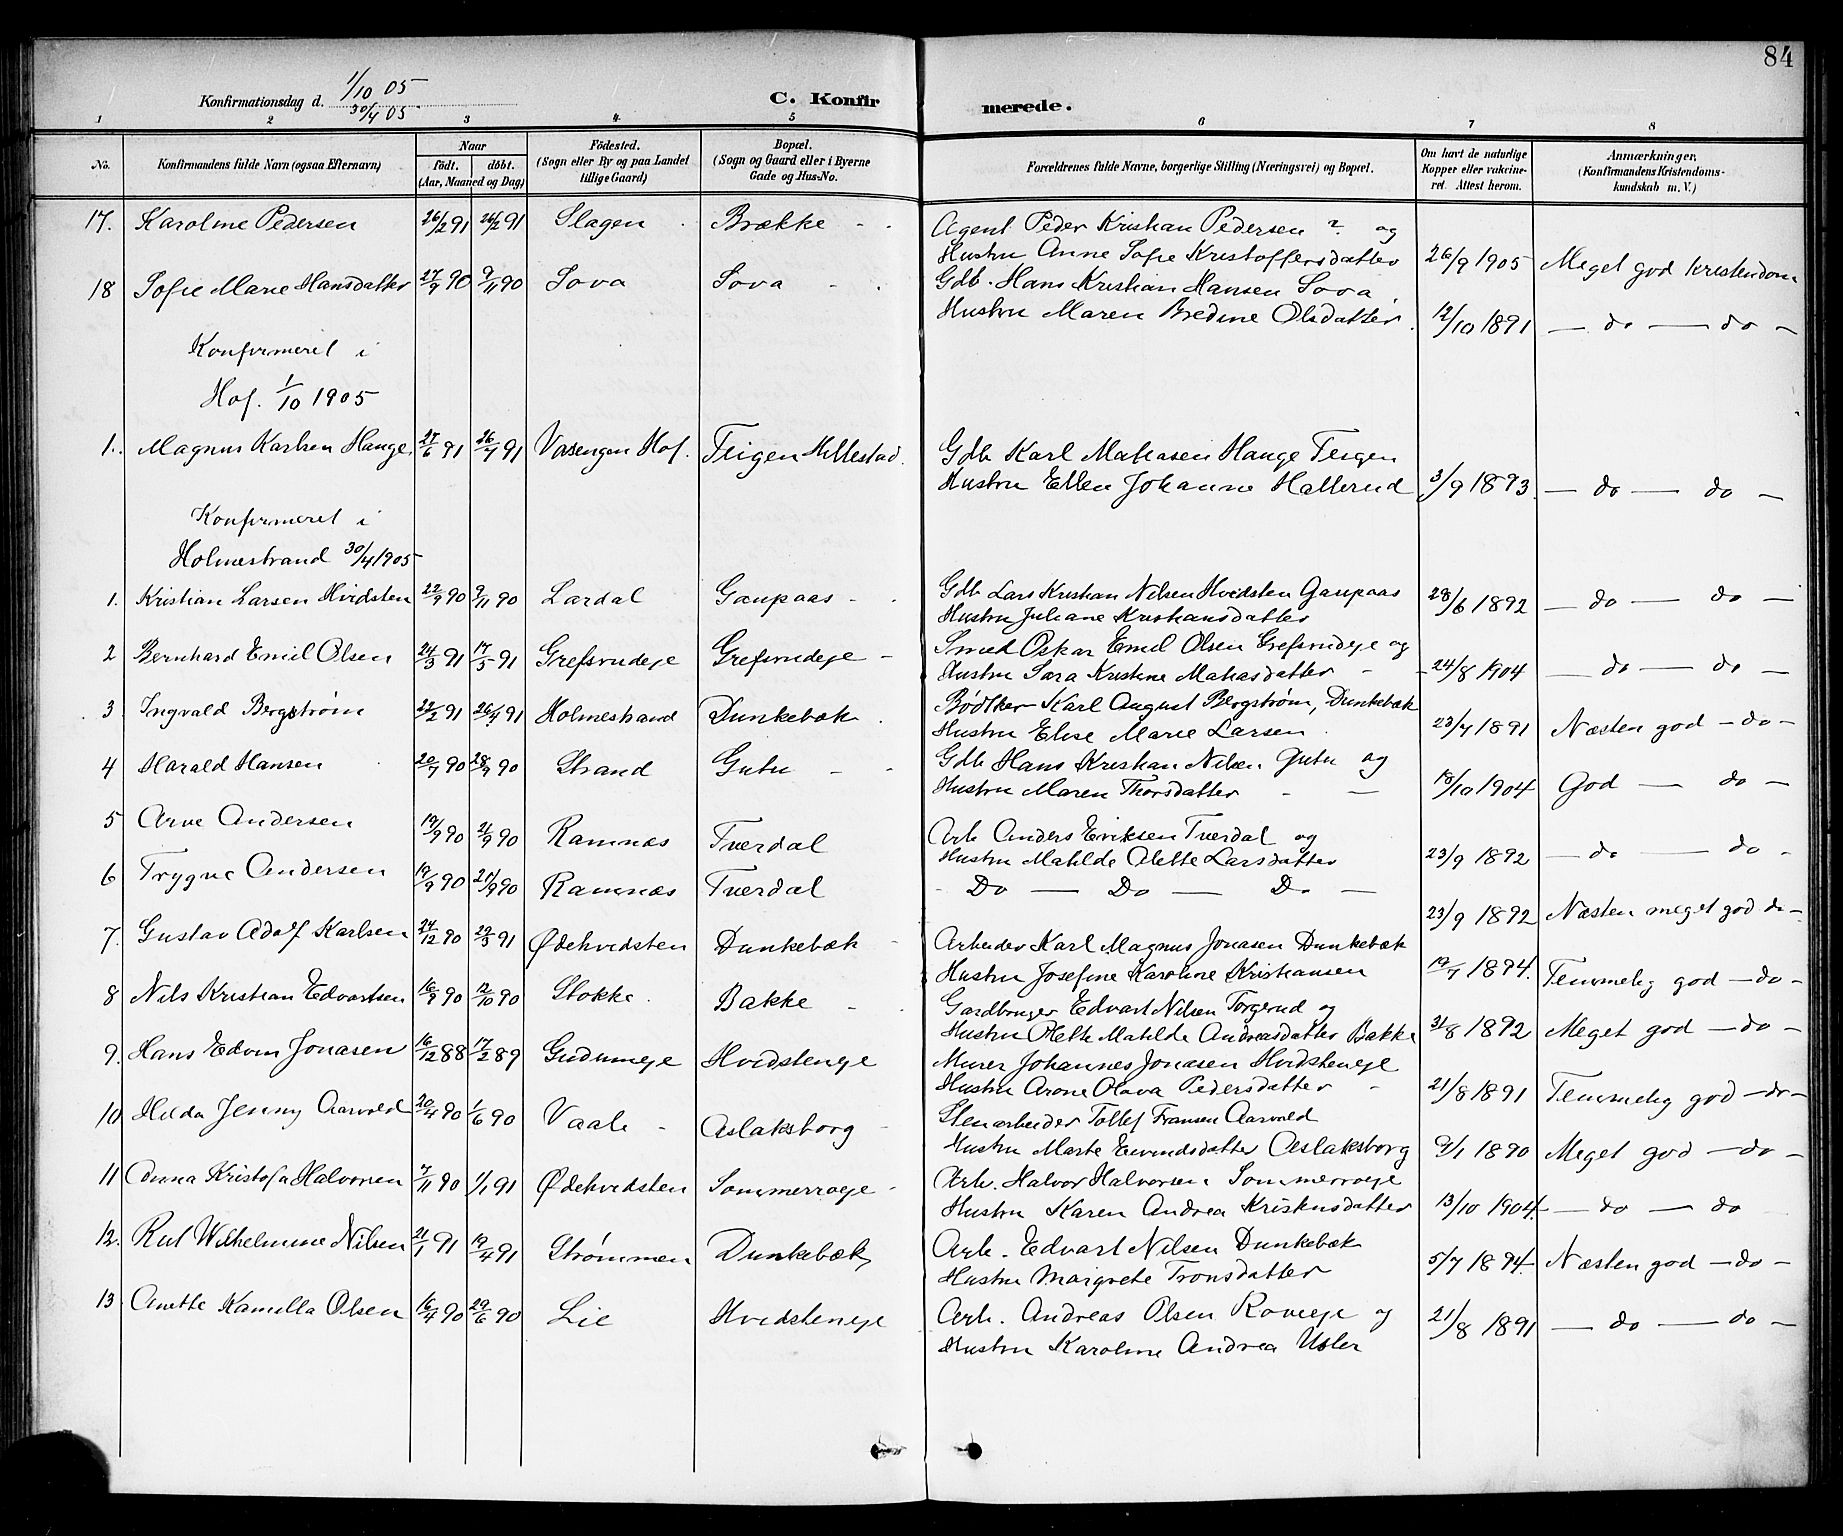 84
Konfirmationsdag d. 1/10 05
30/4 05
C. Konfir merede.
1 2 3 4 5 6 7 8
No. Konfirmandens fulde Navn (ogsaa Efternavn) Naar født. døbt. (Aar, Maaned og Dag) Fødested. (Sogn eller By og paa Landet tillige Gaard) Bopæl. (Sogn og Gaard eller i Byerne Gade og Hus-No. Forældrenes fulde Navne, borgerlige Stilling (Næringsvei) og Bopæl. Om havt de naturlige Kopper eller vakcineret. Attest herom. Anmærkninger. (Konfirmandens Kristendomskundskab m. V.)
17. Karoline Pedersen 26/2 91 26/2 91 Slagen Brække Agent Peder Kristian Pedersen ? og
Hustru Anne Sofie Kristoffersdatter 26/9 1905 Meget god Kristendom
18 Sofie Marie Hansdatter 27/9 90 9/11 90 Sova Sova Gdb. Hans Kristian Hansen Sova
Hustru Maren Bredine Olsdatter 12/10 1891 — do — do —
Konfirmeret i
Hof. 1/10 1905
1. Magnus Karlsen Hauge 27/6 91 26/7 91 Vasengen Hof. Teigen Hillestad. Gdb Karl Matiasen Hauge Teigen
Hustru Ellen Johanne Hallerud 3/9 1893 — do — do —
Konfirmeret i
Holmestrand 30/4 1905
1. Kristian Larsen Hvidsten 22/9 90 9/11 90 Lardal Gaupaas Gdb Lars Kristian Nilsen Hvidsten Gaupaas
Hustru Juliane Kristiansdatter 28/6 1892 — do — do —
2 Bernhard Emil Olsen 24/3 91 17/5 91 Grefsrudeje Grefsrudeje Smed Oskar Emil Olsen Grefsrudeje og
Hustru Sara Kristine Matiasdatter 24/8 1904 — do — do —
3 Ingvald Bergstrøm 22/2 91 26/4 91 Holmestrand Dunkebæk Bødtker Karl August Bergstrøm, Dunkebæk
Hustru Elise Marie Larsen 23/7 1891 Næsten god — do —
4 Harald Hansen 20/7 90 28/9 90 Strand Gutu Gdb Hans Kristian Nilsen Gutu og
Hustru Maren Thorsdatter 18/10 1904 God — do —
5 Arve Andersen 19/9 90 21/9 90 Ramnæs Tverdal Arb Anders Eriksen Tverdal og
Hustru Matilde Alette Larsdatter 23/9 1892 — do — do -
6 Trygve Andersen 19/9 90 21/9 90 Ramnæs Tverdal - Do — Do — Do —
23/9 1892 Næsten meget god do —
7. Gustav Adolf Karlsen 24/12 90 29/3 91 Ødehvidsten Dunkebæk Arbeider Karl Magnus Jonasen Dunkebæk
Hustru Josefine Karoline Kristiansen 19/7 1894. Temmelig god — do —
8 Nils Kristian Edvartsen 16/9 90 12/10 90 Stokke. Bakke Gardbruger Edvart Nilsen Torgerud og
Hustru Mette Matilde Andreasdatter Bakke 31/8 1892 Meget god — do —
9. Hans Edvin Jonasen 16/12 88 17/2 89 Gudumeje Hvidsteneje Murer Johannes Jonasen Hvidsteneje
Hustru Arone Olava Pedersdatter 21/8 1891 Temmelig god — do —
10 Hilda Jenny Aarvold 20/4 90 1/6 90 Vaale Aslaksborg Stenarbeider Tollef Fransen Aarvold
Hustru Marte Eevindsdatter Aslaksborg 9/1 1890 Meget god — do —
11 Anna Kristofa Halvorsen 7/11 90 1/1 91 Ødehvidsten Sommerroeje Arb. Halvor Halvorsen Sommerroeje
Hustru Karen Andrea Kristensdatter 13/10 1904. — do — do
12. Rut Wilhelmine Nilsen 21/1 91 19/4 91 Strømmen Dunkebæk Arb. Edvart Nilsen Dunkebæk
Hustru Margrete Tronsdatter 5/7 1894. Næsten god — do —
13 Anette Kamilla Olsen 16/4 90 29/6 90 Lie Hvidsteneje Arb. Andreas Olsen Roveje og
Hustru Karoline Andrea Usler 21/8 1891 — do — do —